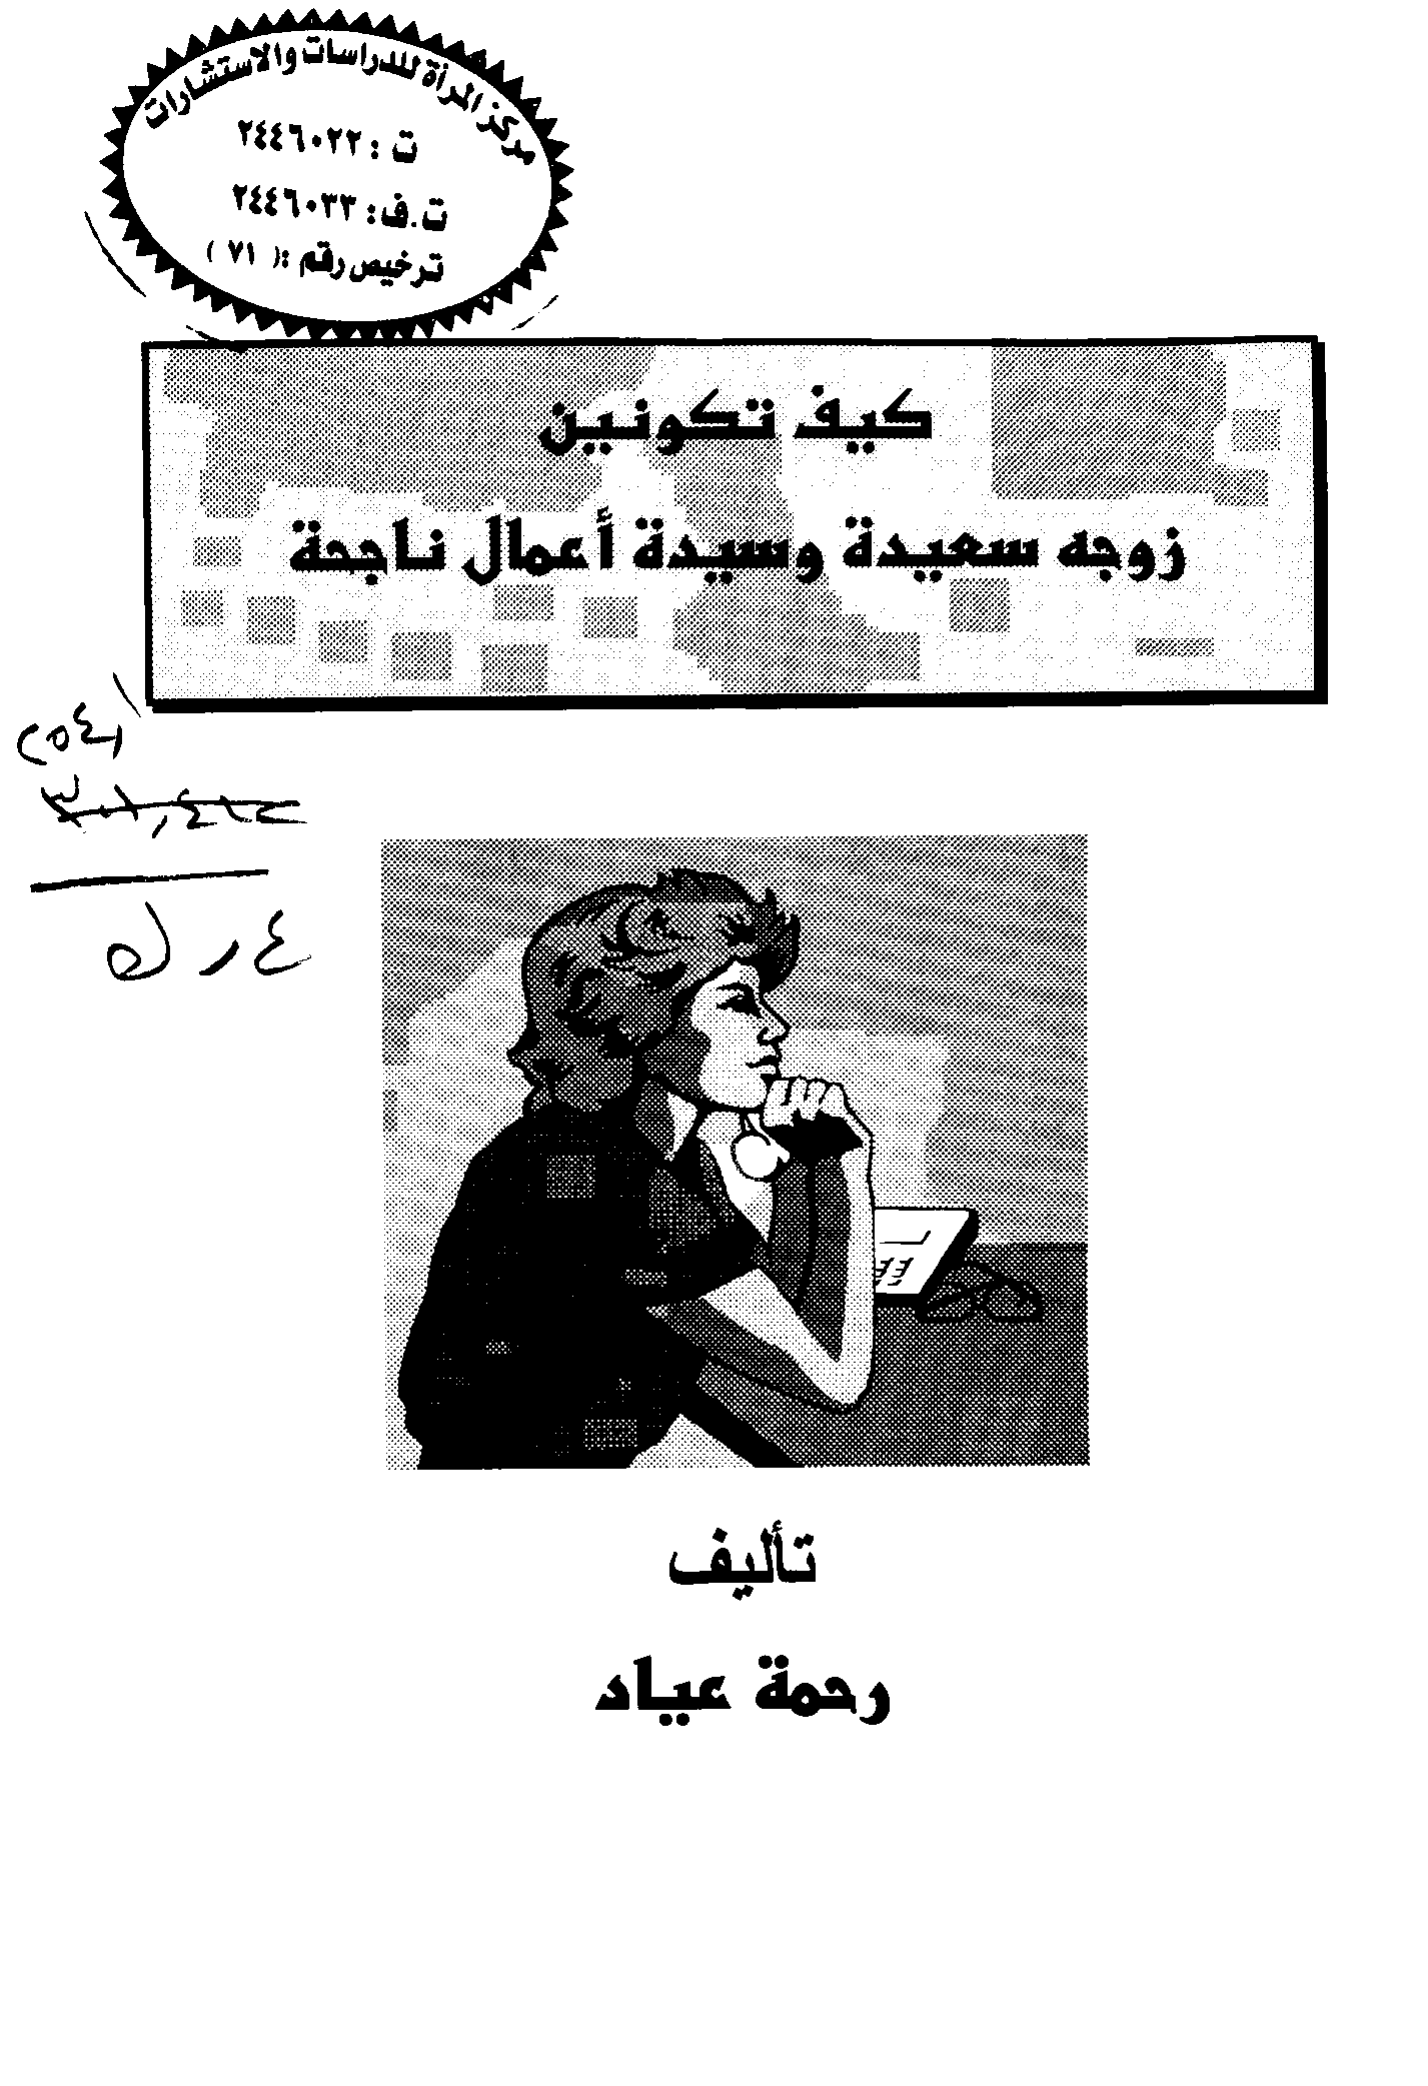 مركز المرأة للدراسات والاستشارات
ت : ٢٤٤٦٠٢٢
ت.ف: ٢٤٤٦٠٣٣
ترخيص رقم :( ٧١ )
كيف تكونين
زوجه سعيدة وسيدة أعمال ناجحة
تأليف
رحمة عياد